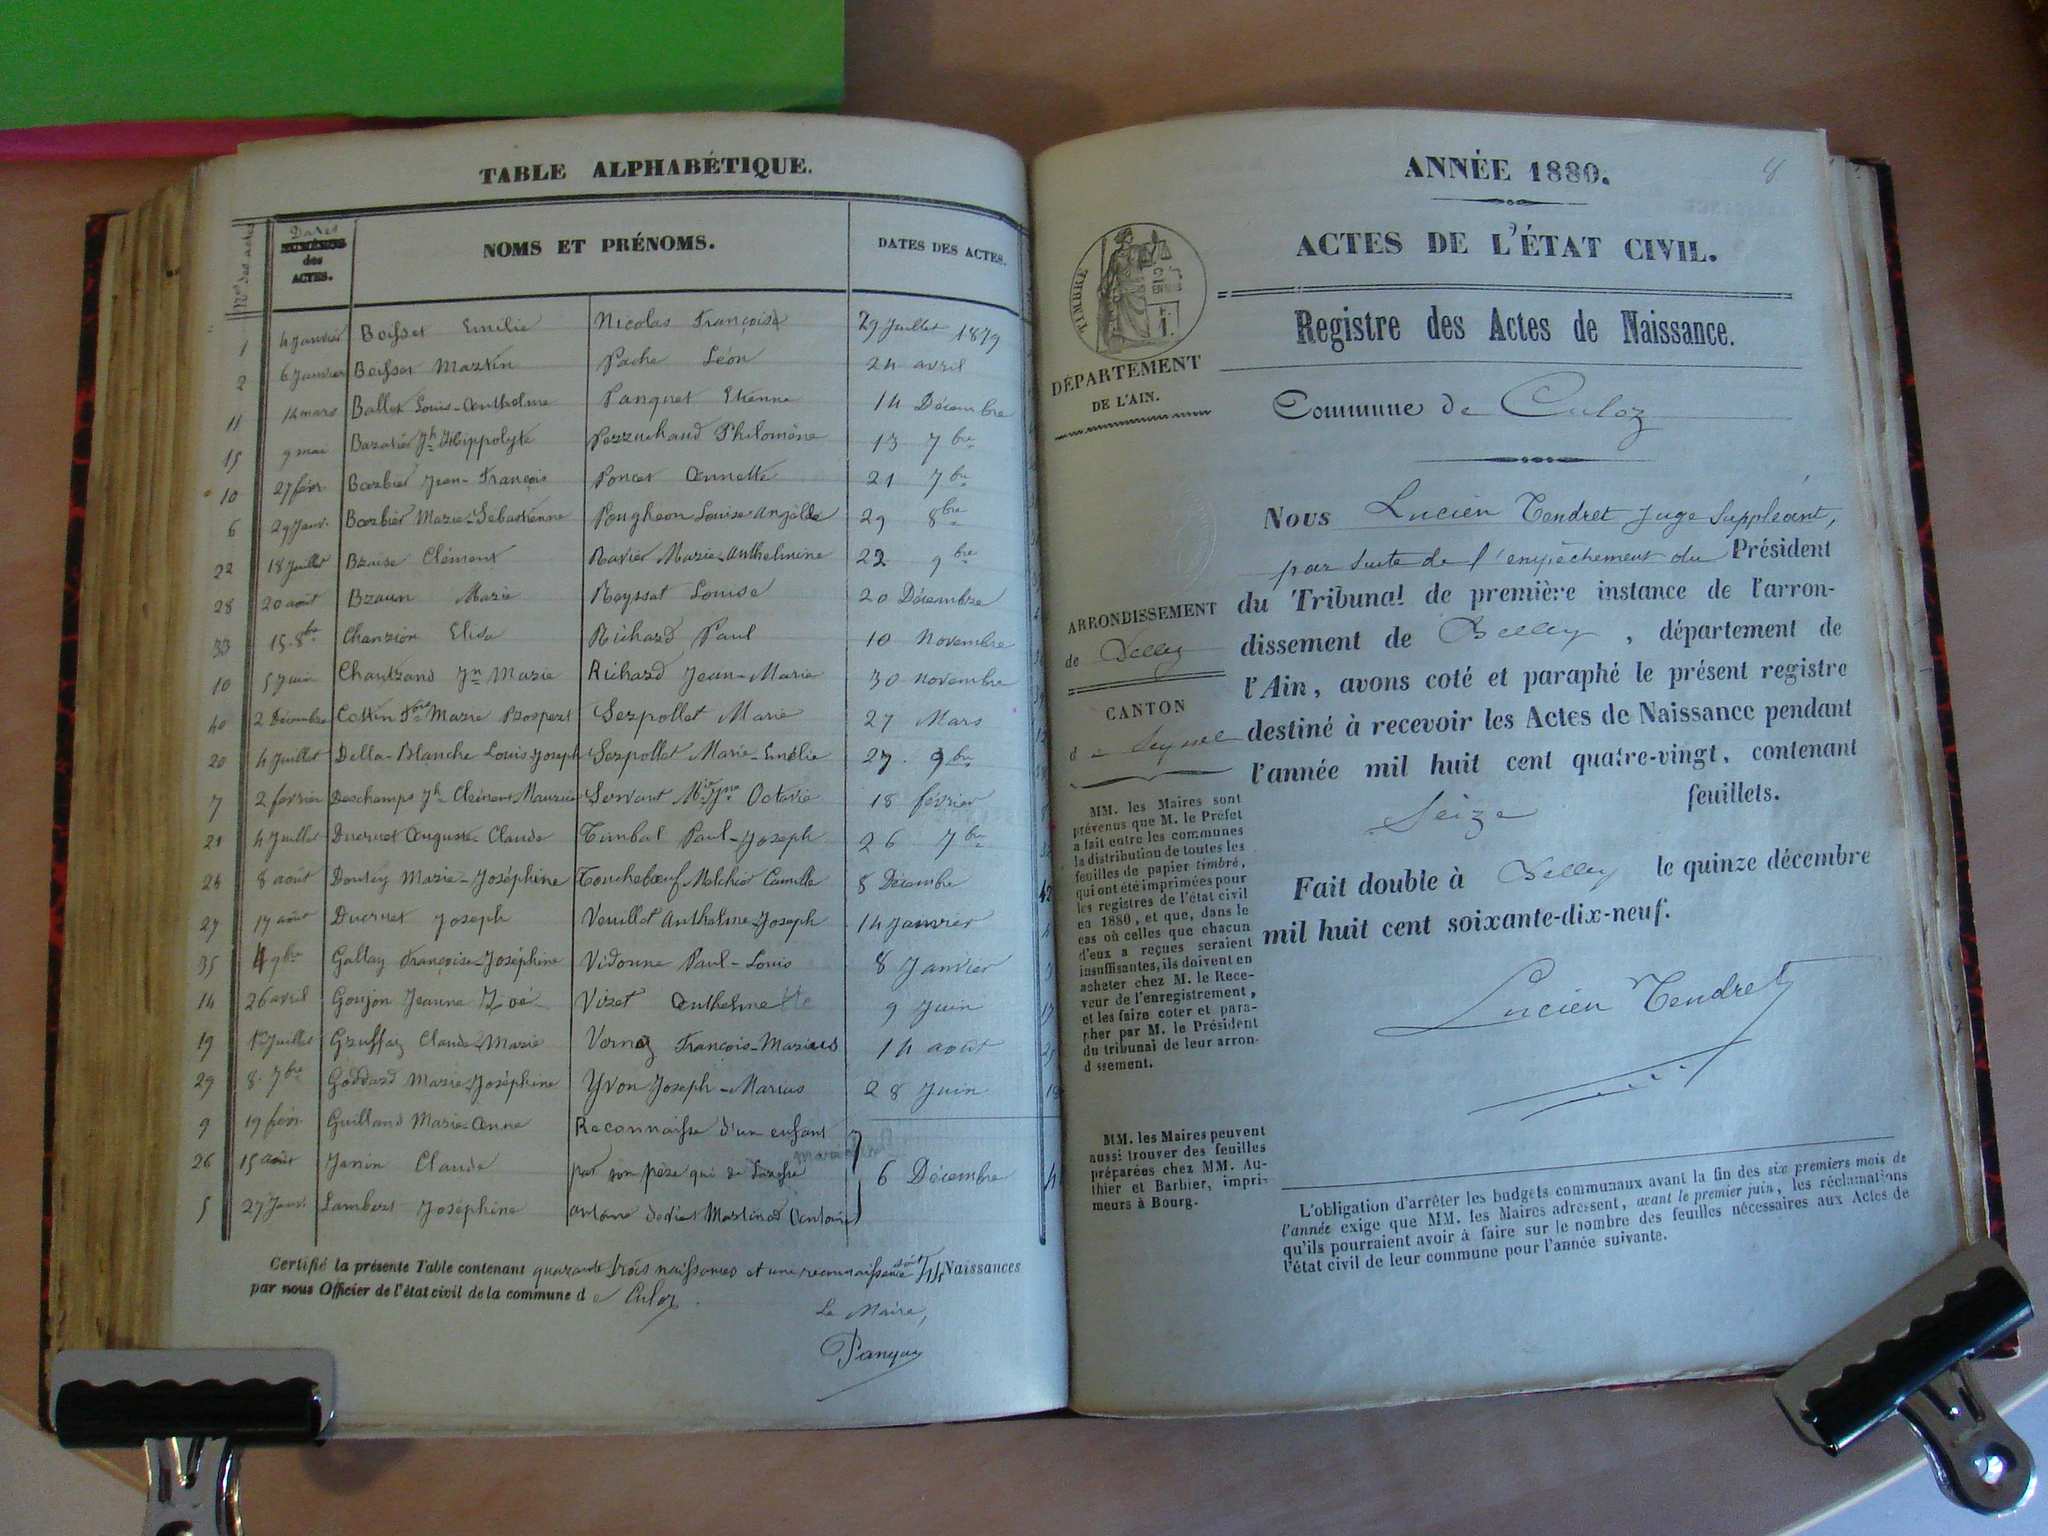 TABLE ALPHABÉTIQUE.
Nos des actes
Dates
NUMÉROS
des
ACTES.
NOMS ET PRÉNOMS.
DATES DES ACTES.
1 4 Janvier Boisset Emilie Nicolas François 29 Juillet 1879
2 6 Janvier Boisset Martin Pache Léon 24 avril
11 14 mars Ballet Louis-Anthelme Panquet Etienne 14 Décembre
15 9 mai Jh Hippolyte Philomène 13 7bre
10 27 févr. Barbier Jean-François Poncet Annette 21 7bre
6 29 Janv. Barbier Marie-Sébastienne Pougheon Louise Angèle 29 8bre
22 18 Juillet Braise Clément Ravier Marie-Anthelmine 22 9bre
28 20 août Braun Marie Reyssat Louise 20 Décembre
33 15 8bre Chanzion Elisa Richard Paul 10 Novembre
10 5 Juin Chautrand Jn Marie Richard Jean-Marie 30 novembre
40 2 Décembre Cottin Marie Prospert Serpollet Marie 27 Mars
20 4 Juillet Della-Blanche Louis Joseph Serpollet Marie-Emélie 27. 9bre
7 2 février Deschamps Jh Clément Maurice Servant Octavie 18 février
21 4 Juillet Ducruet Auguste Claude Timbal Paul-Joseph 26 7bre
8 août Marie-Joséphine Touchebœuf Melchior Camille 8 Décembre 42
27 17 août Ducruet Joseph Veuillet Anthelme-Joseph 14 Janvier
35 4 9bre Gallay Françoise-Joséphine Vidonne Paul-Louis 8 Janvier
14 26 avril Goujon Jeanne Zoé Vizet Anthelme 9 Juin
19 1er Juillet Gruffaz Claude-Marie Vernaz François-Marius 14 août
29 8. 7bre Goddard Marie-Joséphine Yvon Joseph-Marius 28 Juin
9 19 févr Guilland Marie-Anne Reconnaisse d'un enfant
26 15 août Janin Claude par son père qui se 6 Décembre
5 27 Janv. Lambert Joséphine Antoine
Certifié la présente Table contenant quarante trois naissances et une reconnaissance Naissances
par nous Officier de l'état civil de la commune de Culoz.
Le Maire,
ANNÉE 1880.
8
ACTES DE L'ÉTAT CIVIL.
TIMBRE
Registre des Actes de Naissance.
DÉPARTEMENT
DE L'AIN.
Commune de Culoz
Nous Lucien Tendret Juge Suppléant,
par suite de l'empêchement du Président
du Tribunal de première instance de l'arron-
dissement de Belley, département de
l'Ain, avons coté et paraphé le présent registre
destiné à recevoir les Actes de Naissance pendant
l'année mil huit cent quatre-vingt, contenant
Seize feuillets.
Fait double à Belley le quinze décembre
mil huit cent soixante-dix-neuf.
Lucien Tendret
ARRONDISSEMENT
de Belley
CANTON
de Seyssel
MM. les Maires sont
prévenus que M. le Préfet
a fait entre les communes
la distribution de toutes les
feuilles de papier timbré,
qui ont été imprimées pour
les registres de l'état civil
en 1880, et que, dans le
cas où celles que chacun
d'eux a reçues seraient
insuffisantes, ils doivent en
acheter chez M. le Rece-
veur de l'enregistrement,
et les faire coter et para-
pher par M. le Président
du tribunal de leur arron-
dissement.
MM. les Maires peuvent
aussi trouver des feuilles
préparées chez MM. Au-
thier et Barbier, impri-
meurs à Bourg.
L'obligation d'arrêter les budgets communaux avant la fin des six premiers mois de
l'année exige que MM. les Maires adressent, avant le premier juin, les réclamations
qu'ils pourraient avoir à faire sur le nombre des feuilles nécessaires aux Actes de
l'état civil de leur commune pour l'année suivante.